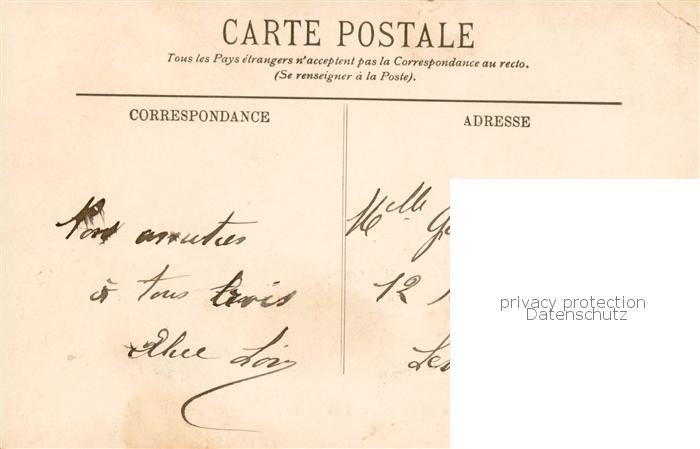 CARTE POSTALE
Tous les Pays étrangers n'acceptent pas la Correspondance au recto.
(Se renseigner à la Poste).
CORRESPONDANCE
ADRESSE
amitiés
à tous trois
Mlle
12
privacy protection
Datenschutz